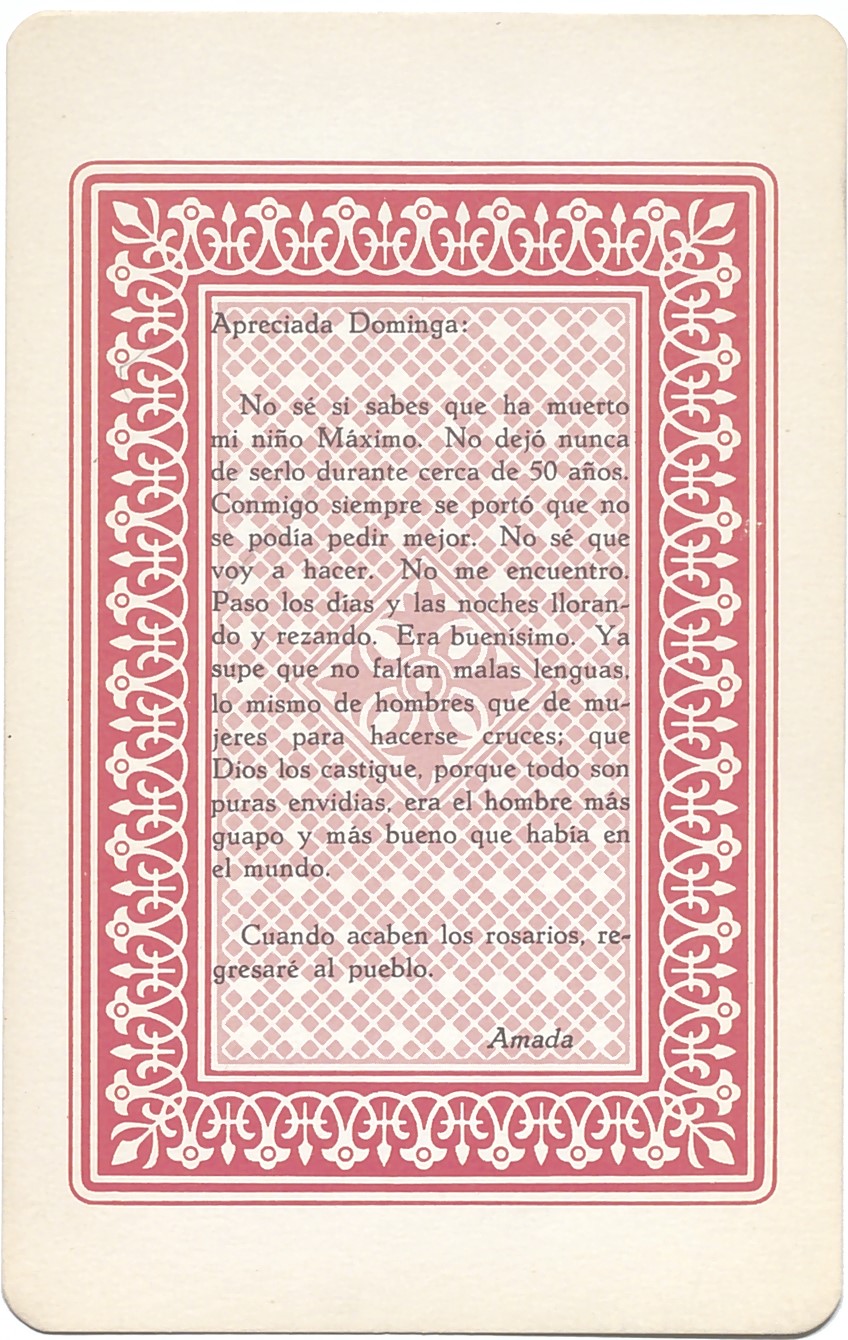 Apreciada Dominga:
No sé si sabes que ha muerto
mi niño Máximo. No dejó nunca
de serlo durante cerca de 50 años.
Conmigo siempre se portó que no
se podía pedir mejor. No sé que
voy a hacer. No me encuentro.
Paso los días y las noches lloran-
do y rezando. Era buenísimo. Ya
supe que no faltan malas lenguas,
lo mismo de hombres que de mu-
jeres para hacerse cruces; que
Dios los castigue, porque todo son
puras envidias, era el hombre más
guapo y más bueno que había en
el mundo.
Cuando acaben los rosarios, re-
gresaré al pueblo.
Amada